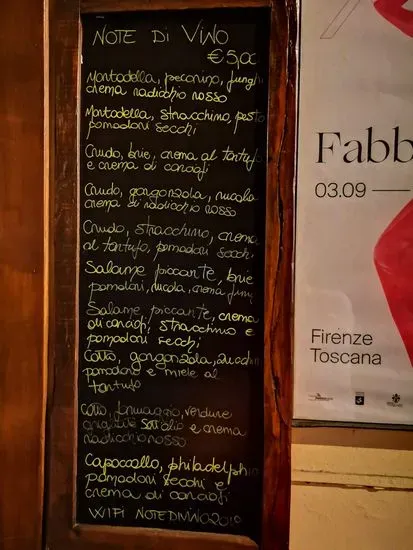 NOTE DI VINO
€ 5,00
Mortadella, pecorino, funghi
crema radicchio rosso
Mortadella, stracchino, pesto
pomodori secchi
Crudo, brie, crema al tartufo
e crema di carciofi
Crudo, gorgonzola, rucola
crema di radicchio rosso
Crudo, stracchino, crema
al tartufo, pomodori secchi
Salame piccante, brie
pomodori, rucola, crema funghi
Salame, piccante, crema
di carciofi, stracchino e
pomodori secchi
Cotto, gorgonzola, zucchine
pomodoro e miele al
tartufo
Cotto, formaggio, verdure
grigliate sott'olio e crema
radicchio rosso
Capocollo, philadelphia
pomodori secchi e
crema di carciofi
WIFI NOTEDIVINO2019
Fabb
03.09
Firenze
Toscana